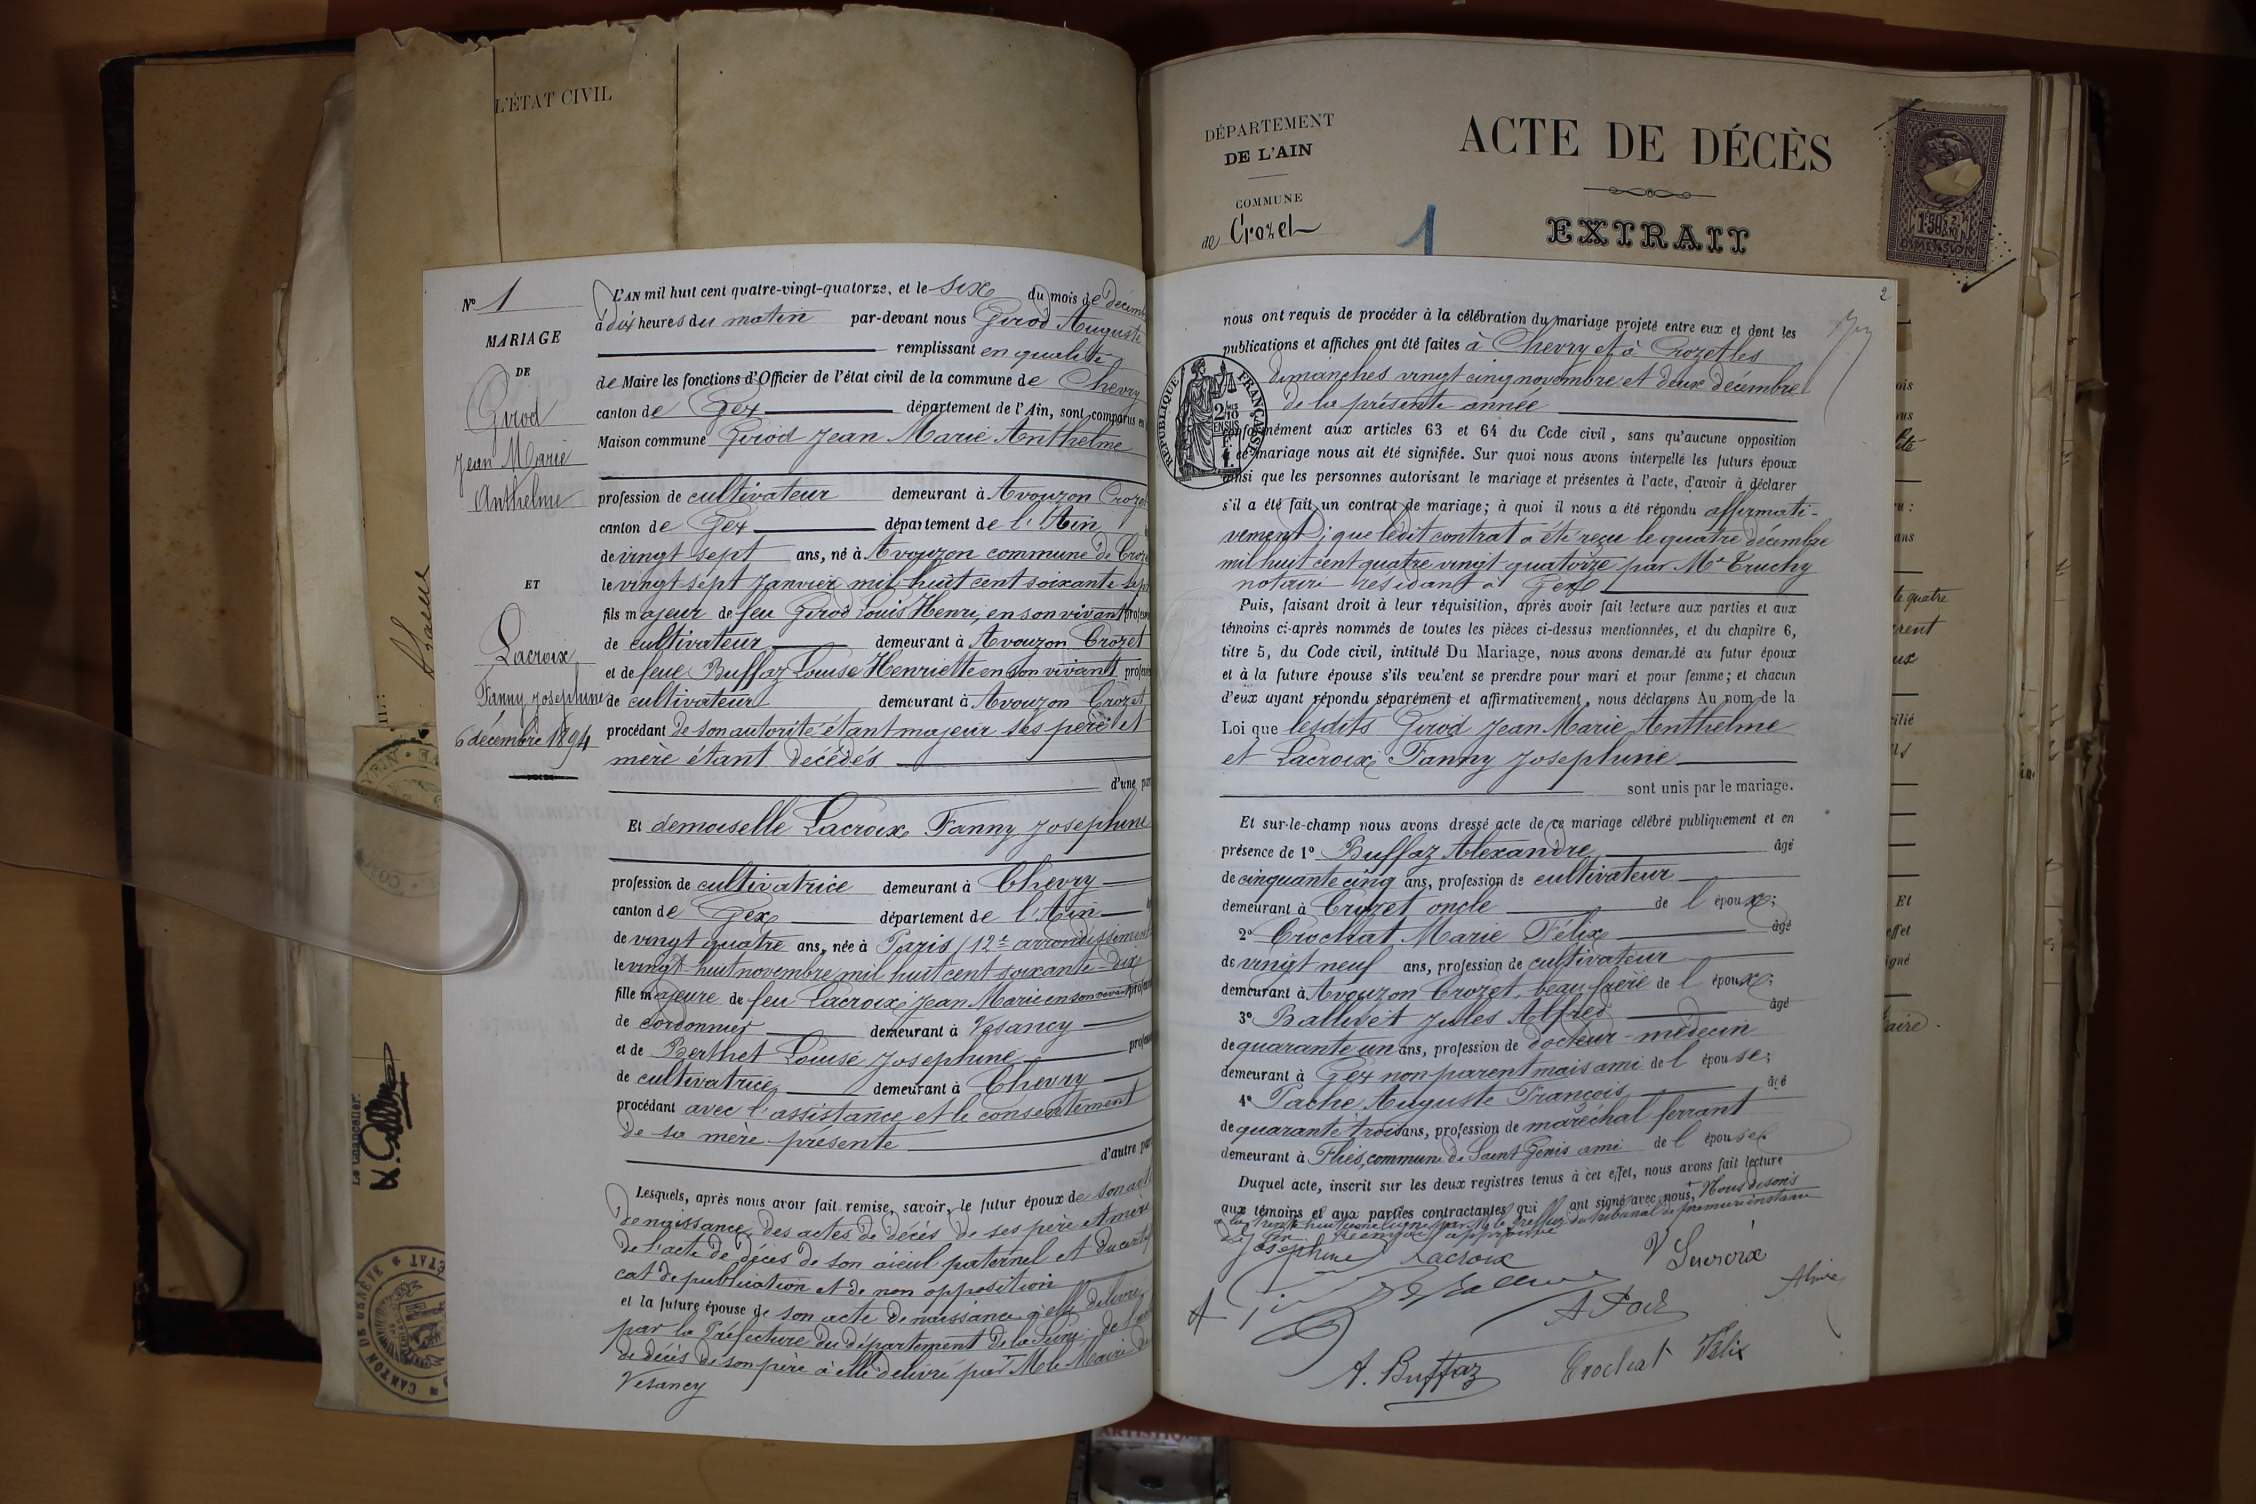 L'ÉTAT CIVIL
Nº 1
MARIAGE
DE
Girod
Jean Marie
Anthelme
ET
Lacroix
Fanny Josephine
6 décembre 1894
L'AN mil huit cent quatre-vingt-quatorze, et le six du mois de décemb
à dix heures du matin par-devant nous Girod Auguste
remplissant en qualité
de Maire les fonctions d'Officier de l'état civil de la commune de Chevry
canton de Gex département de l'Ain, sont comparus en
Maison commune Girod Jean Marie Anthelme
profession de cultivateur demeurant à Avouzon Crozet
canton de Gex département de l'Ain
de vingt sept ans, né à Avouzon commune de Croze
le vingt sept Janvier mil huit cent soixante sept
fils majeur de feu Girod Louis Henri, en son vivant profession
de cultivateur demeurant à Avouzon Crozet
et de feue Buffaz Louise Henriette en son vivant profess
de cultivateur demeurant à Avouzon Crozet
procédant de son autorité étant majeur ses père et
mère étant décédés
d'une par
Et demoiselle Lacroix Fanny Josephine
profession de cultivatrice demeurant à Chevry
canton de Gex département de l'Ain
de vingt quatre ans, née à Paris (12e arrondissement
le vingt huit novembre mil huit cent soixante-dix
fille majeure de feu Lacroix Jean Marie en son vivant profess
de cordonnier demeurant à Vesancy
et de Berthet Louise Josephine profess
de cultivatrice demeurant à Chevry
procédant avec l'assistance et le consentement
de sa mère présente
d'autre par
Lesquels, après nous avoir fait remise, savoir, le futur époux de son acte
de naissance, des actes de décès de ses père et mère
de l'acte de décès de son aïeul paternel et du certifi
cat de publication et de non opposition
et la future épouse de son acte de naissance à elle délivré
par la Préfecture du département de la Seine de l'acte
de décès de son père à elle délivré par M. le Maire de
Vesancy
Le Chancelier.
CANTON DE GENÈVE
DÉPARTEMENT
DE L'AIN
COMMUNE
de Crozet
1
ACTE DE DÉCÈS
EXTRAIT
1F50c
DIMENSION
2
nous ont requis de procéder à la célébration du mariage projeté entre eux et dont les
publications et affiches ont été faites à Chevry et à Crozet les
dimanches vingt cinq novembre et deux décembre
de la présente année
RÉPUBLIQUE FRANÇAISE
conformément aux articles 63 et 64 du Code civil, sans qu'aucune opposition
à ce mariage nous ait été signifiée. Sur quoi nous avons interpellé les futurs époux
ainsi que les personnes autorisant le mariage et présentes à l'acte, d'avoir à déclarer
s'il a été fait un contrat de mariage; à quoi il nous a été répondu affirmati-
vement; que ledit contrat a été reçu le quatre décembre
mil huit cent quatre vingt quatorze par Me Truchy
notaire résidant à Gex
Puis, faisant droit à leur réquisition, après avoir fait lecture aux parties et aux
témoins ci-après nommés de toutes les pièces ci-dessus mentionnées, et du chapitre 6,
titre 5, du Code civil, intitulé Du Mariage, nous avons demandé au futur époux
et à la future épouse s'ils veulent se prendre pour mari et pour femme; et chacun
d'eux ayant répondu séparément et affirmativement, nous déclarons Au nom de la
Loi que lesdits Girod Jean Marie Anthelme
et Lacroix Fanny Josephine
sont unis par le mariage.
Et sur-le-champ nous avons dressé acte de ce mariage célébré publiquement et en
présence de 1º Buffaz Alexandre âgé
de cinquante cinq ans, profession de cultivateur
demeurant à Crozet oncle de l époux;
2º Crochat Marie Félix âgé
de vingt neuf ans, profession de cultivateur
demeurant à Avouzon Crozet, beau frère de l époux;
3º Ballivet Jules Alfred âgé
de quarante un ans, profession de docteur-médecin
demeurant à Gex non parent mais ami de l épouse;
4º Pache Auguste François âgé
de quarante trois ans, profession de maréchal ferrant
demeurant à Flies, commune de Saint Genis ami de l épouse.
Duquel acte, inscrit sur les deux registres tenus à cet effet, nous avons fait lecture
aux témoins et aux parties contractantes qui ont signé avec nous, Nous disons
à la trente huitième ligne par M. le greffier du tribunal de première instance
de Gex
Josephine Lacroix
A. Buffaz
Crochat Félix